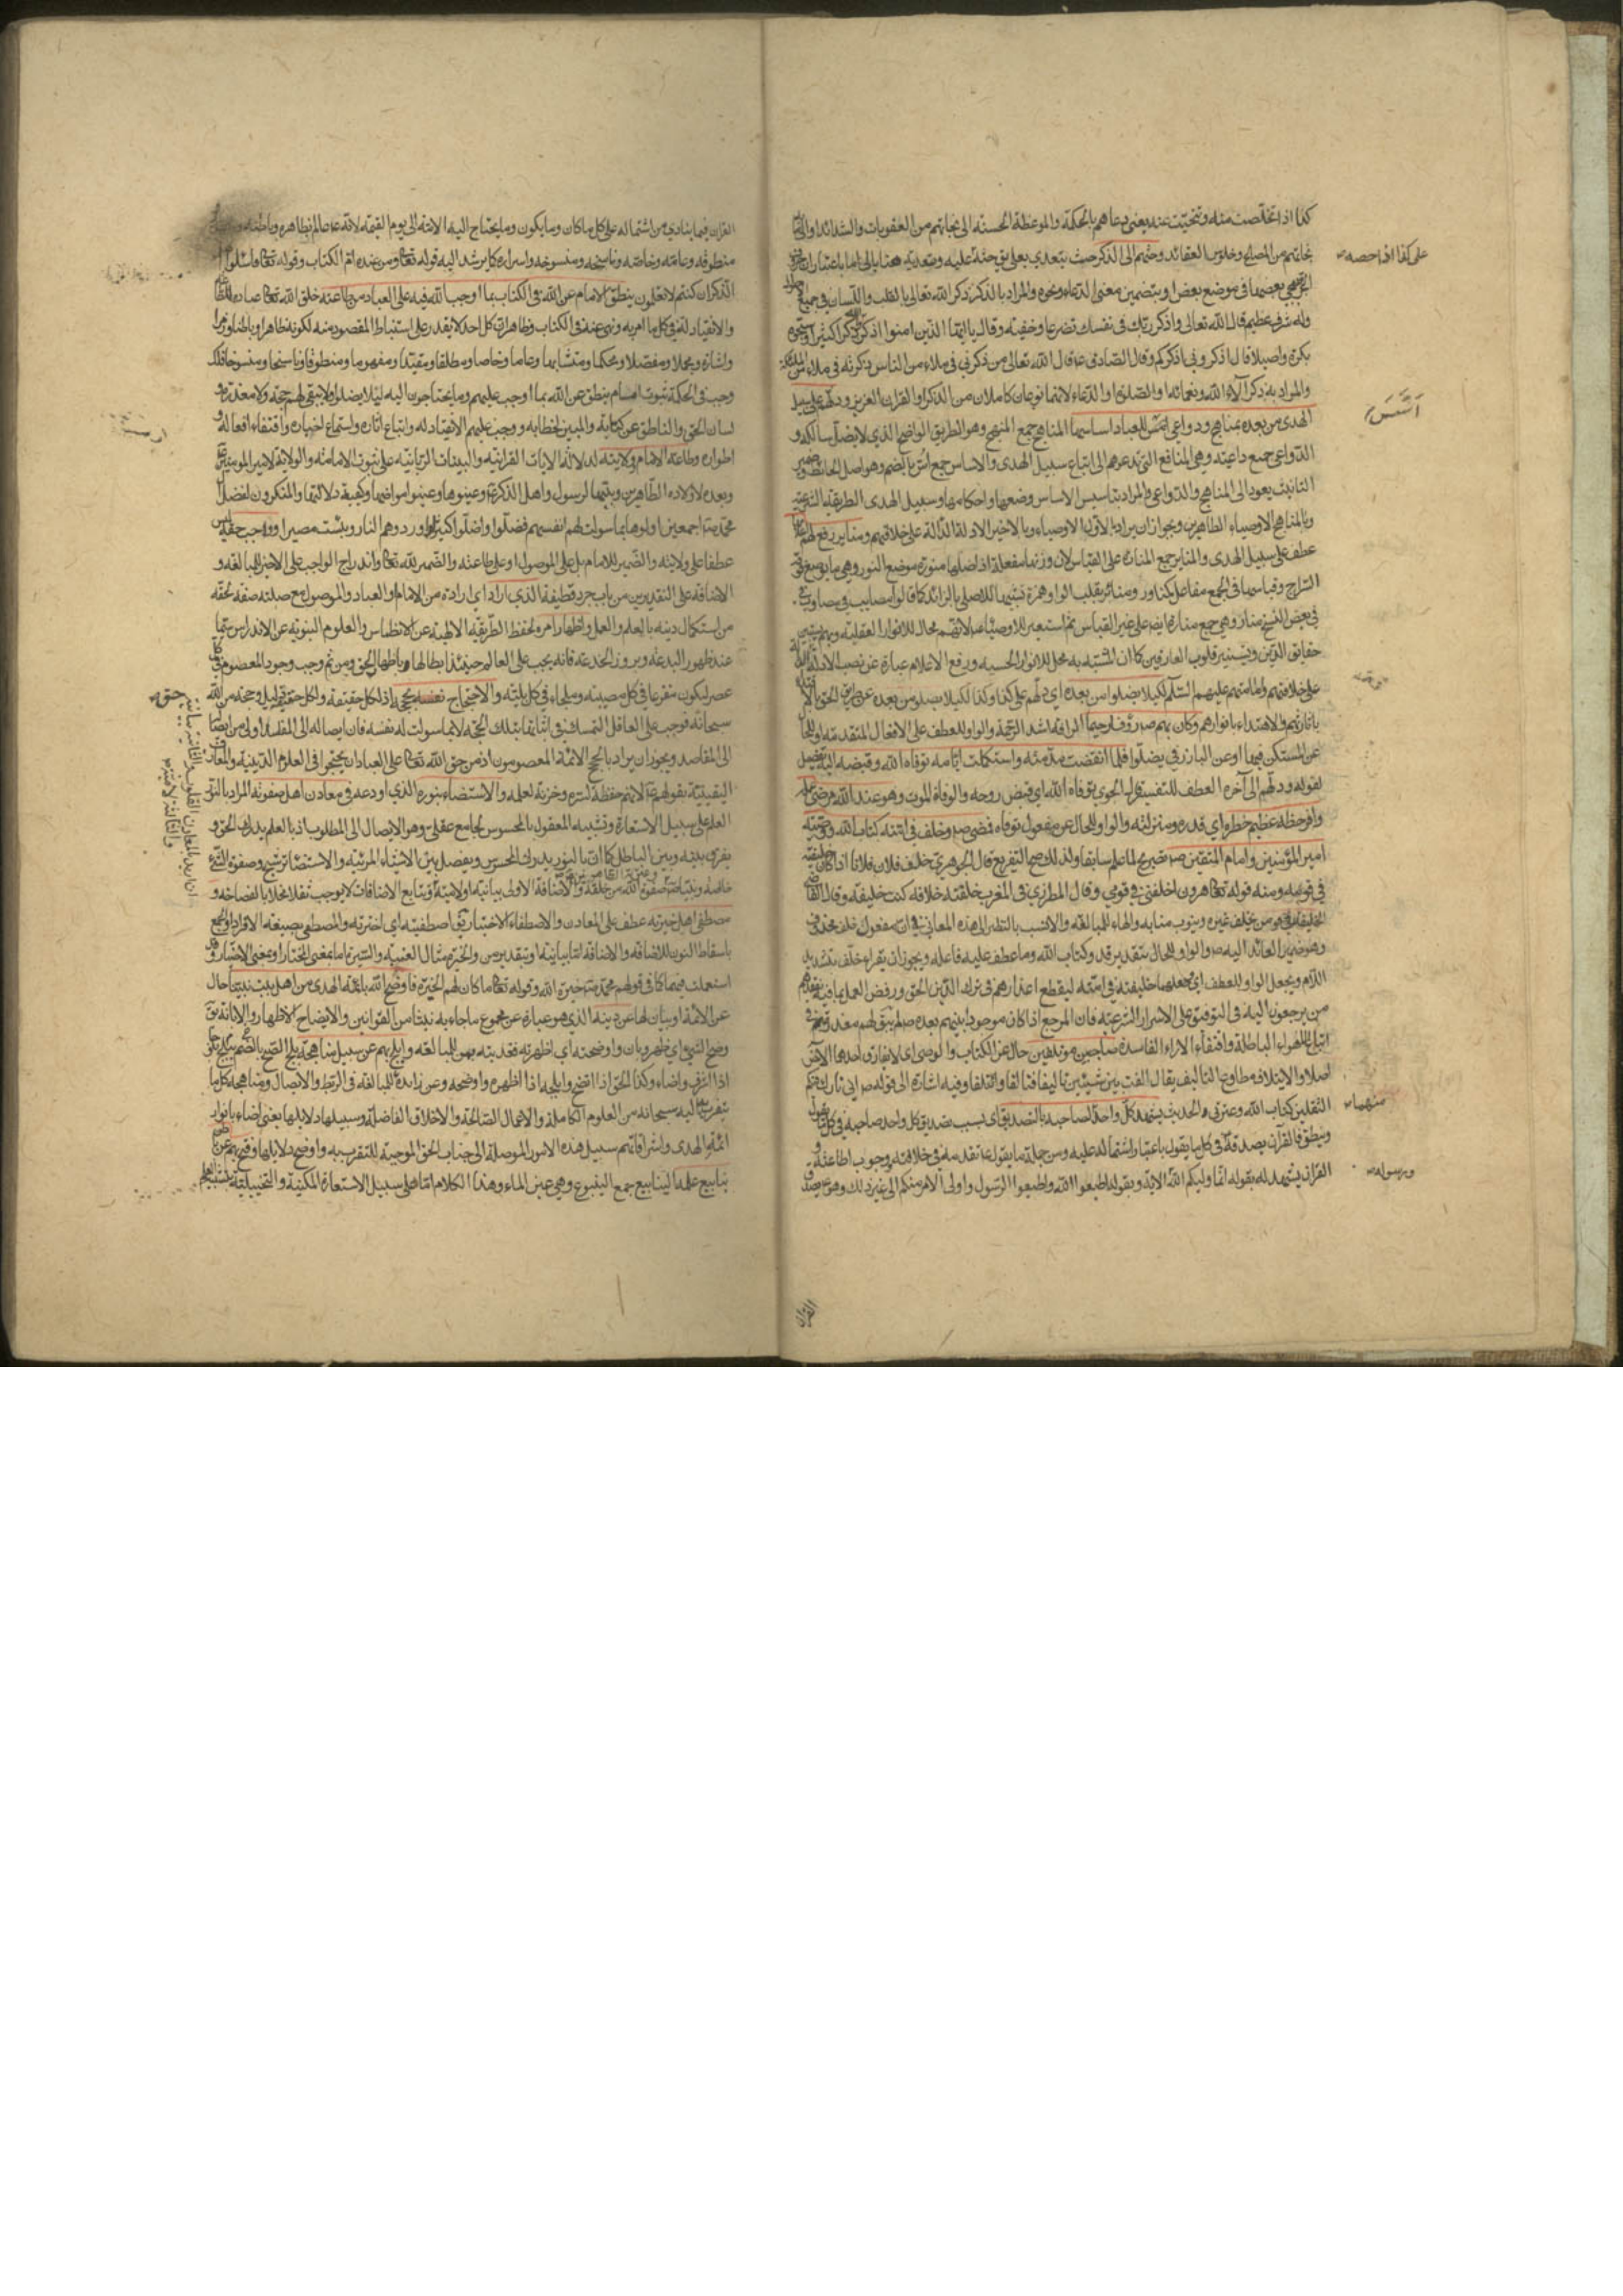 كذا اذا تخلصت منه وتنحيت عنه يعني دعاهم بالحكمة والموعظة الحسنة الى نجاتهم من العقوبات والشدائد او الى
نجاتهم من وخلوص العقائد وحثهم الى الذكر حيث يتعدى بعلى يق حثه عليه وتعديته ههنا بالى اما باعتبار ان حروف
الجر يجئ بعضها في موضع بعض او بتضمين معنى الدعاء ونحوه والمراد بالذكر ذكر الله تعالى بالقلب واللسان في جميع
وله شرف عظيم قال الله تعالى واذكر ربك في نفسك تضرعا وخفية وقال يا ايها الذين امنوا اذكروا الله ذكرا كثيرا وسبحوه
بكرة واصيلا قال اذكروني اذكركم وقال الصادق ع قال الله تعالى من ذكرني في ملاء من الناس ذكرته في ملاء من الملائكة
والمراد به ذكر آلاء الله ونعمائه او الصلوة او الدعاء لانهما نوعان كاملان من الذكر او القران العزيز ودلهم على سبيل
الهدى من بعده بمناهج ودواعي اسس للعباد اساسها المناهج جمع المنهج وهو الطريق الواضح الذي لا يضل سالكه و
الدواعي جمع داعية وهي المنافع التي تدعوهم الى اتباع سبيل الهدى والاساس جمع اس بالضم وهو اصل الحائط وضمير
التانيث يعود الى المناهج والدواعي والمراد بتاسيس الاساس وضعها واحكامها وسبيل الهدى الطريقة الشرعية
وبالمناهج الاوصياء الطاهرين ويجوز ان يراد بالاول الاوصياء وبالاخير الادلة الدالة على خلافتهم ومناير رفع لهم اعلامها
عطف على سبيل الهدى والمناير جمع المنارة على القياس لان وزنها مفعلة اذ اصلها منورة موضع النور وهي ما يوضع فوقه
السراج وقياسها في الجمع مفاعل كمناور ومنائر بقلب الواو همزة تشبيها للاصلي بالزائد كما قالوا مصايب في مصاوب
في بعض النسخ منار وهي جمع منارة ايضا على غير القياس ثم استعير للاوصياء لانهم محال للانوار العقلية وبهم يتبين
حقايق الدين ويستنير قلوب العارفين كما ان المشبه به محل للانوار الحسية ورفع الاعلام عبارة عن نصب الادلة
على خلافتهم وامامتهم عليهم السلام لكيلا يضلوا من بعده اي دلهم على كذا وكذا لكيلا يضلوا من بعده عن طريق الحق
باثارهم والاهتداء بانوارهم وكان بهم صم رؤفا رحيما الرافة اشد الرحمة والواو للعطف على الافعال المتقدمة او للحال
عن المستكن فيها او عن البارز في يضلوا فلما انقضت مدته واستكملت ايامه توفاه الله وقبضه اليه
لقوله ودلهم الى آخره العطف للتفسير قال الجوهري توفاه الله اي قبض روحه والوفاة الموت وهو عند الله مرضي عمله
وافر حظه عظيم خطره اي قدره ومنزلته والواو للحال عن مفعول توفاه فمضى صم وخلف في امته كتاب الله ووصيه
امير المؤمنين وامام المتقين صم تصريح لما علم سابقا ولذلك صح التفريع قال الجوهري خلف فلان فلانا اذا كان خليفته
في قومه ومنه قوله تعالى هرون اخلفني في قومي وقال المطرزي في المغرب خلفته خلافة كنت خليفته وقال القاضي
الخليفة من يخلف غيره وينوب منابه والهاء للمبالغة والانسب بالنظر الى هذه المعاني ان مفعول خلف محذوف
وهو ضمير العائد اليه صم والواو للحال بتقدير قد وكتاب الله وما عطف عليه فاعله ويجوز ان يقراء خلف بتشديد
اللام ويجعل الواو للعطف اي جعلهما خليفته في امته ليقطع اعذارهم في ترك الدين الحق ورفض العمل بما فيه
من يرجعون اليه في التوفيق على الاسرار الشرعية فان المرجع اذا كان موجودا بينهم بعده صم لم يبق لهم معذرة
اتباع الاهواء الباطلة واقتفاء الاراء الفاسدة صاحبين مؤتلفين حال عن الكتاب والوصي اي لا يفارق احدهما الاخر
اصلا والايتلاف مطاوع التاليف يقال الفت بين شيئين تاليفا فتالفا وائتلفا وفيه اشارة الى قوله صم اني تارك فيكم
الثقلين كتاب الله وعترتي الحديث يشهد كل واحد لصاحبه بالتصديق اي بسبب تصديق كل واحد صاحبه في كل
وينطق فالقرآن يصدقه في كل ما يقول باعتبار اشتماله عليه ومن جملة ما يقول ما تقدمه في خلافته ووجوب اطاعته و
القران يشهد له بقوله انما وليكم الله الاية وبقوله اطيعوا الله واطيعوا الرسول واولى الامر منكم الى غير ذلك وهو يصدق
على كذا اذا حصه
اَسَّسَ
منهما
ورسوله
القران
القران فيما ينادي من اشتماله على كل ما كان وما يكون وما يحتاج اليه الامة الى يوم القيمة لانه ع عالم بظاهره وباطنه
منطوقه وعامه وخاصه وناسخه ومنسوخه واسراره كما يرشد اليه قوله تعالى ومن عنده ام الكتاب وقوله تعالى فاسئلوا اهل
الذكر ان كنتم لا تعلمون ينطق الامام عن الله في الكتاب بما اوجب الله فيه على العباد من طاعته خلق الله تعالى عباده
والانقياد له في كل ما امر به ونهى عنه في الكتاب وظاهر ان كل احد لا يقدر على استنباط المقصود منه لكونه ظاهرا وباطنا ورمزا
واشارة ومجملا ومفصلا ومحكما ومتشابها وعاما وخاصا ومطلقا ومقيدا ومفهوما ومنطوقا وناسخا ومنسوخا فلذلك
وجب في الحكمة ثبوت امام ينطق عن الله بما اوجب عليهم وما يحتاجون اليه لئلا يضلوا ولا يبقى لهم حجة ولا معذرة وهو
لسان الحق والناطق عن كتابه والمبين لخطابه ووجب عليهم الانقياد له واتباع اثاره واستماع اخباره واقتفاء افعاله و
اطواره وطاعة الامام وولايته لدلالة الايات القرانية والبينات الربانية على ثبوت الامامة والولاية لامير المؤمنين
وبعده لاولاده الطاهرين وبينها الرسول واهل الذكر ع وعينوها وعينوا مواضعها وكيفية دلالتها والمنكرون لفضل
محمد اجمعين اولوها بما سولت لهم انفسهم فضلوا واضلوا كثيرا واوردوهم النار وبئست مصيرا وواجب حقه
عطفا على ولايته والضمير للامام بل على الموصول او على طاعته والضمير لله تعالى واندراج الواجب على الاخير للمبالغة و
الاضافة على التقديرين من باب جرد قطيفة الذي اراد اي اراده من الامام او العباد والموصول مع صلته صفة لحقه
من استكمال دينه بالعلم والعمل واظهار امره لحفظ الطريقة الالهية عن الانطماس والعلوم النبوية عن الاندراس سيما
عند ظهور البدعة وبروز الخدعة فانه يجب على العالم حينئذ ابطالها واظهار الحق ومن ثم وجب وجود المعصوم في كل
عصر ليكون مفزعا في كل مصيبة وملجاء في كل بلية والاحتجاج بحججه اذ لكل حقيقة ولكل حق دليل وحجة من الله
سبحانه فوجب على العاقل التمسك في اثباتها بتلك الحجة لا بما سولت له نفسه فان ايصاله الى المفسد اولى من ايصاله
الى المقاصد ويجوز ان يراد بالحجج الائمة المعصومون اذ من حق الله تعالى على العباد ان يحتجوا في العلوم الدينية والمعارف
اليقينية بقولهم ع لانهم حفظة لسره وخزنة لعلمه والاستضاءة بنوره الذي اودعه في معادن اهل صفوته المراد بالنور
العلم على سبيل الاستعارة وتشبيه المعقول بالمحسوس لجامع عقلي وهو الايصال الى المطلوب اذ بالعلم يدرك الحق و
يفرق بينه وبين الباطل كما ان بالنور يدرك المحسوس ويفصل بين الاشياء المرئية والاستضاءة ترشيح وصفوة الشئ
خالصه ونبينا صفوة الله من خلقه والاضافة الاولى بيانية او لامية وتتابع الاضافات لا يوجب ثقلا مخلا بالفصاحة و
مصطفى اهل خيرته عطف على المعادن والاصطفاء الاختيار يق اصطفيته اي اخترته والمصطفى بصيغة الافراد او الجمع
باسقاط النون للاضافة والاضافة اما بيانية او بتقدير من والخيرة مثال العنبة والسيرة اما بمعنى المختار او بمعنى الاختيار وقد
استعملت فيهما كما في قولهم محمد خيرة الله وقوله تعالى ما كان لهم الخيرة فاوضح الله بائمة الهدى من اهل بيت نبينا حال
عن الائمة او بيان لها عن دينه الذي هو عبارة عن مجموع ماجاء به نبينا من القوانين والايضاح الاظهار والابانة يق
وضح الشئ اي ظهر وبان واوضحته اي اظهرته فقد بينه بهم للمبالغة وابلج بهم عن سبيل مناهجه بلج الصبح بالضم يبلج بلوجا
اذا اشرق واضاء وكذا الحق اذا اتضح وابلجه اذا اظهره واوضحه وعن زائدة للمبالغة في الربط والايصال ومناهجه كل ما
يتقرب به اليه سبحانه من العلوم الكاملة والاعمال الصالحة والاخلاق الفاضلة وسبيلها دلايلها يعني اضاء بانوار
ائمة الهدى واشراقاتهم سبيل هذه الامور الموصلة الى جناب الحق الموجبة للتقرب به واوضح دلايلها وفتح بهم عن باطن
ينابيع علمه الينابيع جمع الينبوع وهي عين الماء وهذا الكلام اما على سبيل الاستعارة المكنية والتخييلية
ان اريد بالمعادن القلوب والثانية بيانية
والثالثة لامية